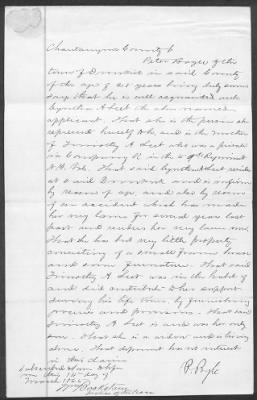 Chautauqua County
Peter Boyle of the
town of Dunkirk in said County
of the age of years being duly sworn
says that he is well acquainted with
Cynthia A Cheet the above named
applicant. That she is the person she
represents herself to be and is the mother
of Timothy A Cheet who was a private
in Company K in the 49th Regiment
N.Y. Vols. That said Cynthia Cheet resides
at said Dunkirk and is infirm
by reason of age, and also by reason
of an accident which has made
her very lame for several years last
past and renders her very lame now
That she has but very little property
consisting of a small frame house
and some furniture. That said
Timothy A Cheet was in the habit of
and did contribute to her support
during his life time, by furnishing
groceries and provisions. That said
Timothy A Cheet is and was her only
son. That she is a widow and is living
alone. That deponent has no interest
in this claim
Subscribed & sworn before
me this 14th day of
March 1865
P. Boyle
Justice of the Peace